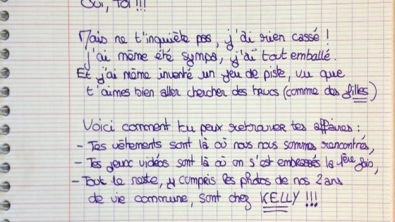 Oui, toi !!!
Mais ne t'inquiète pas, j'ai rien cassé !
j'ai même été sympa, j'ai tout emballé.
Et j'ai même inventé un jeu de piste, vu que
t'aimes bien aller chercher des trucs (comme des filles)
Voici comment tu peux retrouver tes affaires :
- Tes vêtements sont là où nous nous sommes rencontrés,
- Tes jeux vidéos sont là où on s'est embrassés la 1ère fois,
- Tout le reste, y compris les photos de nos 2 ans
de vie commune, sont chez KELLY !!!